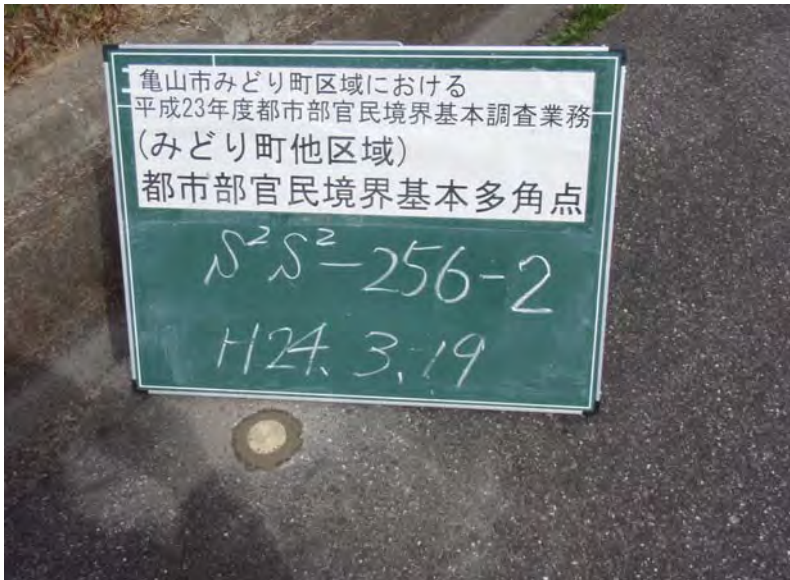 亀山市みどり町区域における
平成23年度都市部官民境界基本調査業務
(みどり町他区域)
都市部官民境界基本多角点
S²S²-256-2
H24.3.19